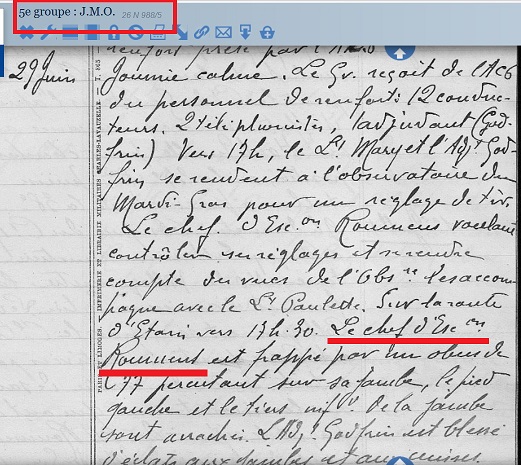 5e groupe : J.M.O. 26 N 988/5
renfort prêté par l'
29 Juin Journée calme. Le Gr. reçoit de l'AC6
du personnel de renfort : 12 conduc-
teurs, 2 téléphonistes, 1 adjudant (God-
frin) Vers 17h, le Lt Mary et l'Adjt God-
frin se rendent à l'observatoire du
Mardi-Gras pour un réglage de tir.
Le chef d'Esc.on Roumens voulant
contrôler ses réglages et se rendre
compte des vues de l'Obs.re les accom-
pagne avec le Lt Paulette. Sur la route
d'Etain vers 17h.30. Le chef d'Esc.on
Roumens est frappé par un obus de
77 percutant sur sa jambe, le pied
gauche et le tiers inf.r de la jambe
sont arrachés. L'Adjt Godfrin est blessé
d'éclats aux jambes et aux cuisses.
PARIS ET LIMOGES. IMPRIMERIE ET LIBRAIRIE MILITAIRES CHARLES-LAVAUZELLE